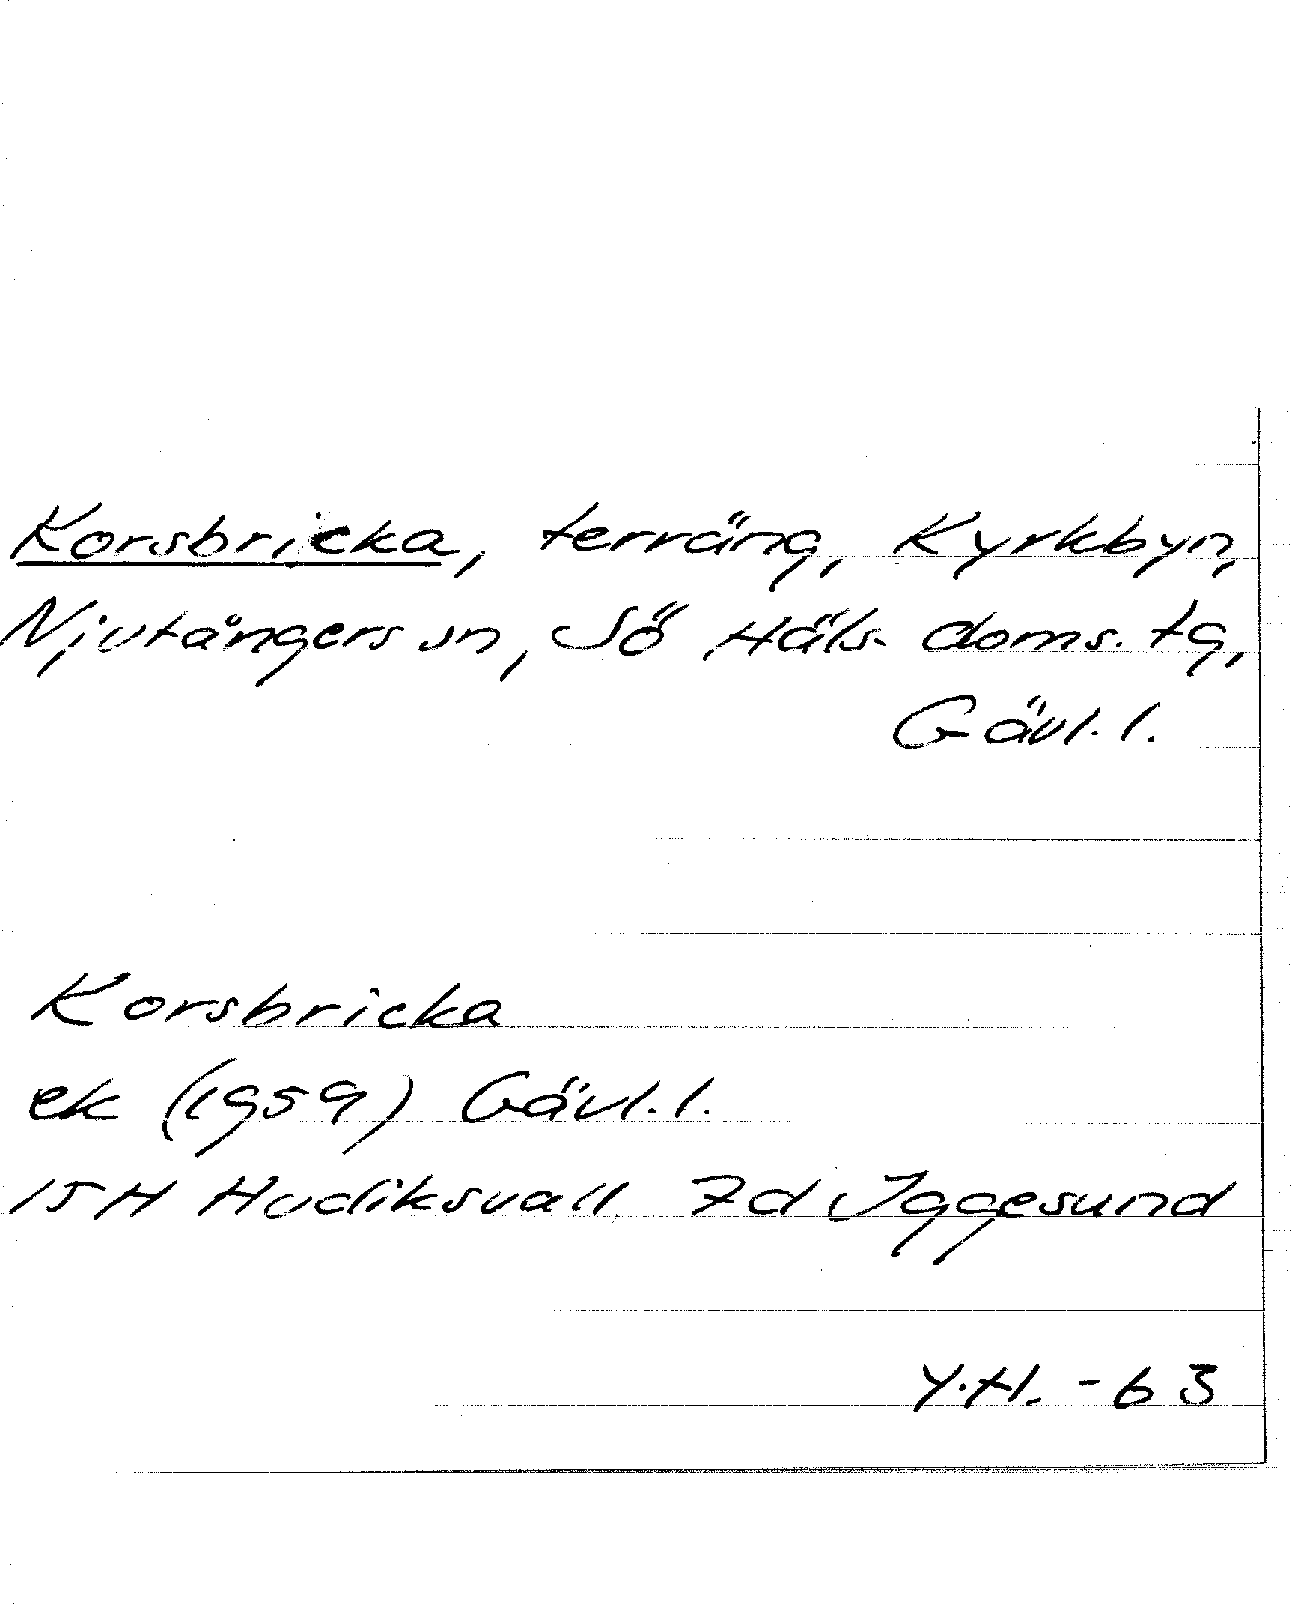 Korsbricka, terräng, Kyrkbyn,
Njutångers sn, Sö Häls. doms. tg,
Gävl. l.
Korsbricka
ek (1959) Gävl. l.
15H Hudiksvall 7d Iggesund
Y.H. -63